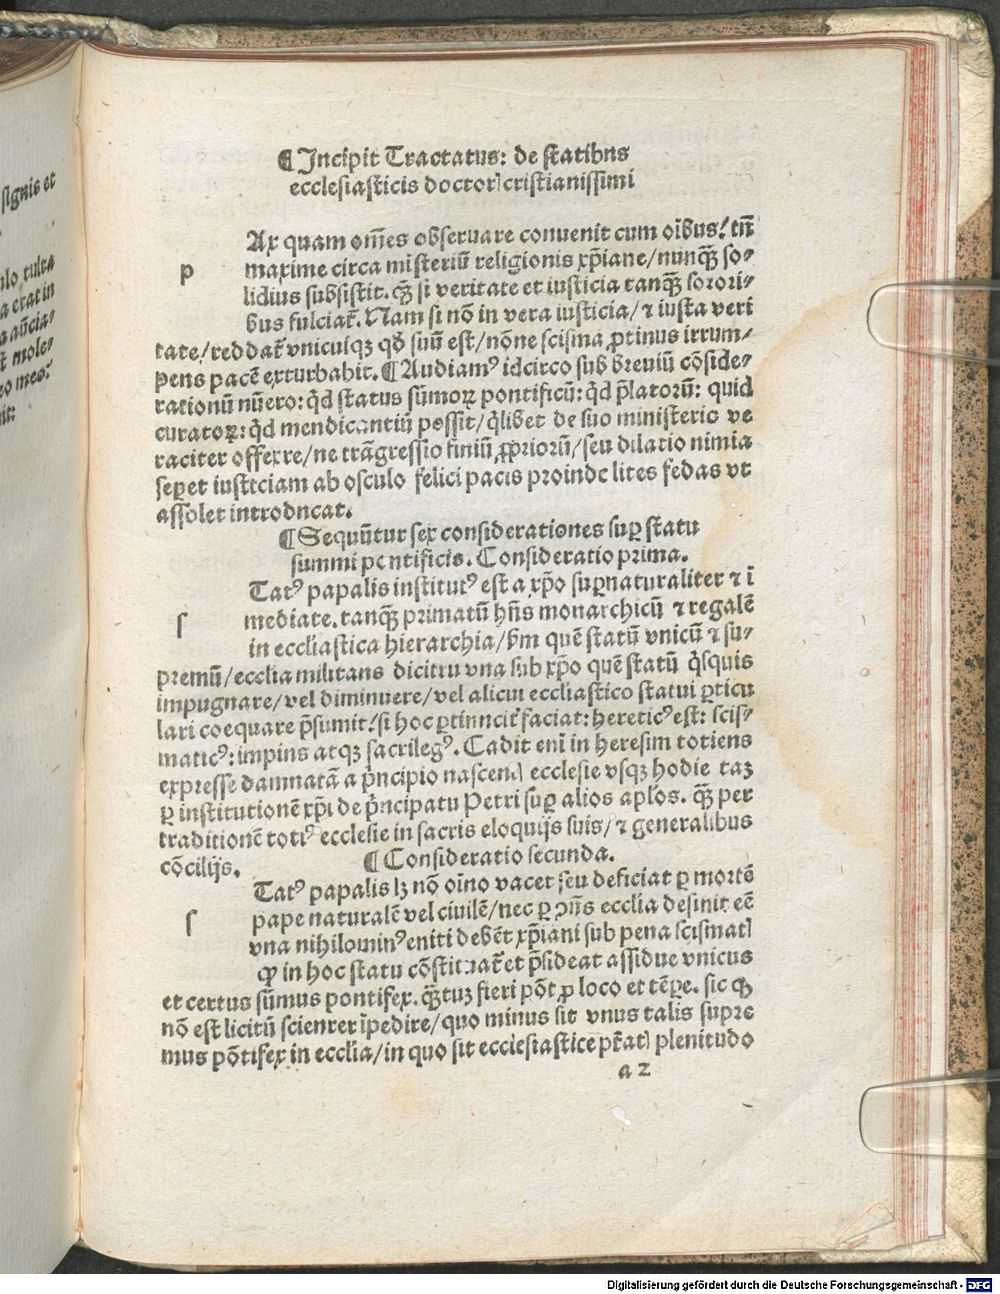 signis et
culo tulta
a erat in
a aūcia⸗
st mole⸗
eo meo:
¶Incipit Tractatus: de statibns
ecclesiasticis doctorꝭ cristianissimi
Ax quam om̄es obseruare conuenit cum oībus/ tn̄
p maxime circa misteriū religionis xp̄iane/nunqꝫ so⸗
lidius subsistit. qꝫ si veritate et iusticia tanqꝫ sorori⸗
bus fulciat̄. Nam si nō in vera iusticia/ ⁊ iusta veri
tate/reddat̄ vnicuiqꝫ qd̓ suū est/ nōne scisma ꝓtinus irrum⸗
pens pacē exturbabit. ¶Audiamꝰ idcirco sub breuiū cōside⸗
rationū nūero: qd̓ status sūmoꝝ pontificū: qd̓ p̄latorū: quid
curatoꝝ: qd̓ mendicantiū possit/ qͥlibet de suo ministerio ve
raciter offerre/ne trāgressio finiū ꝓpriorū/ seu dilatio nimia
seꝑet iusticiam ab osculo felici pacis proinde lites fedas vt
assolet introdncat.
¶Sequūtur sex considerationes suꝑ statu
summi pontificis. Consideratio prima.
Tatꝰ papalis institutꝰ est a xp̄o suꝑnaturaliter ⁊ ī
ſ mediate. tanqꝫ primatū hn̄s monarchicū ⁊ regalē
in eccliastica hierarchia/ ẜm quē statū vnicū ⁊ su⸗
premū/ ecclia militans dicitru vna sub xp̄o quē statū qͥsquis
impugnare/vel diminuere/vel alicui eccliastico statui ꝑticu
lari coequare p̄sumit/ si hoc ꝑtinncit̓ faciat: hereticꝰ est: scis⸗
maticꝰ: impins atqꝫ sacrilegꝰ. Cadit enī in heresim totiens
expresse damnatā a p̄ncipio nascenꝭ ecclesie vsqꝫ hodie taꝫ
ꝑ institutionē xp̄i de p̄ncipatu Petri suꝑ alios apl̓os. qꝫ per
traditionē totiꝰ ecclesie in sacris eloquijs suis/ ⁊ generalibus
cōcilijs. ¶Consideratio secunda.
Tatꝰ papalis lꝫ nō oīno vacet seu deficiat ꝑ mortē
ſ pape naturalē vel ciuilē/ nec ꝑ ꝯn̄s ecclia desinit eē
vna nihilominꝰ eniti debēt xp̄iani sub pena scismatꝭ
ꝙ in hoc statu cōstituat̄ et p̄sideat assidue vnicus
et certus sūmus pontifex. qꝫtuꝫ fieri pōt ꝓ loco et tēꝑe. sic ꝙ
nō est licitū scienter īpedire/ quo minus sit vnus talis supre
mus pōtifex in ecclia/ in quo sit ecclesiastice pt̄atꝭ plenitudo
a 2
Digitalisierung gefördert durch die Deutsche Forschungsgemeinschaft - DFG